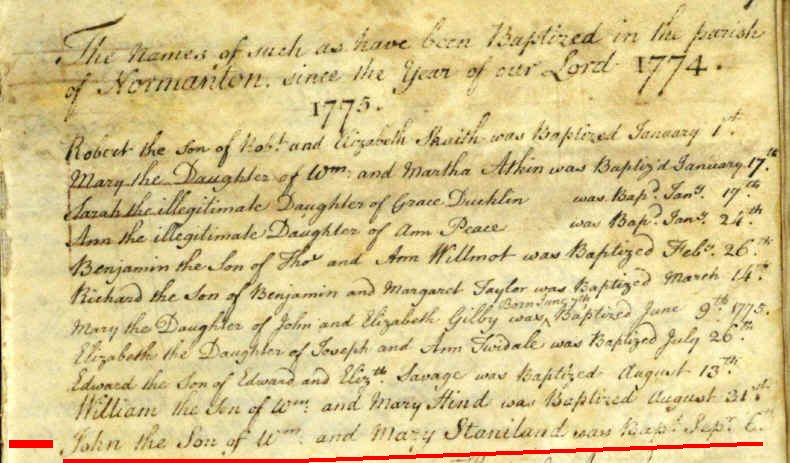 The Names of such as have been Baptized in the parish
of Normanton. since the Year of our Lord 1774.
1775.
Robert the Son of Robt. and Elizabeth Skaith was Baptized January 1st.
Mary the Daughter of Wm: and Martha Atkin was Baptiz'd January 17th
Sarah the illegitimate Daughter of Grace Ducklin was Bapd. Jany. 17th
Ann the illegitimate Daughter of Ann Peace was Bapd. Jany. 24th
Benjamin the Son of Thos and Ann Willmot was Baptized Feby. 26th
Richard the Son of Benjamin and Margaret Taylor was Baptized March 14th
Born June 7th
Mary the Daughter of John and Elizabeth Gilby was ‸ Baptized June 9th 1775.
Elizabeth the Daughter of Joseph and Ann Twidale was Baptized July 26th
Edward the Son of Edward and Elizth. Savage was Baptized August 13th
William the Son of Wm: and Mary Hind was Baptized August 31st
John the Son of Wm: and Mary Staniland was Bapt. Sepr. 6th